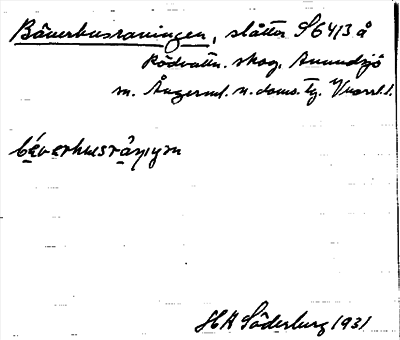 Bäverhusraningen, slåtter S6413 å
Rödvattn. skog, Anundsjö
m. Ångerml. n. doms. tg. Vnorrl. l.
béverhusrân̥ıŋm
HA Söderburg 1931